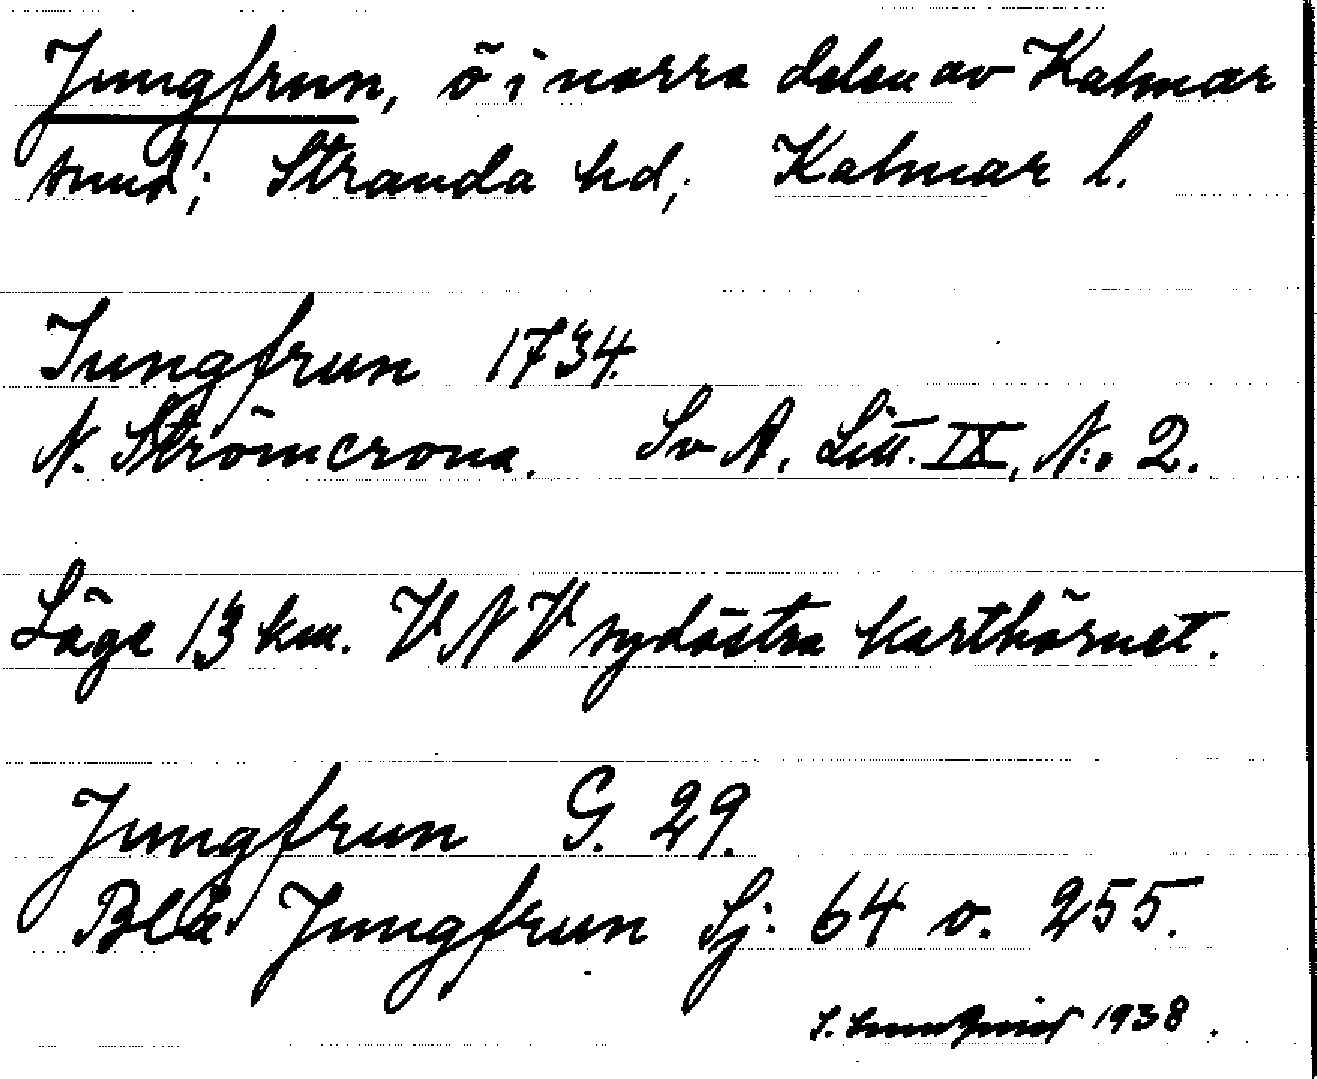 Jungfrun, ö i norra delen av Kalmar
sund; Stranda hd, Kalmar l.
Jungfrun 1734.
N. Strömcrona. Sv A. Litt. IX, N:o 2.
Läge 13 km. VNV sydöstra karthörnet.
Jungfrun G. 29.
Blå Jungfrun Sj: 64 o. 255.
1938.